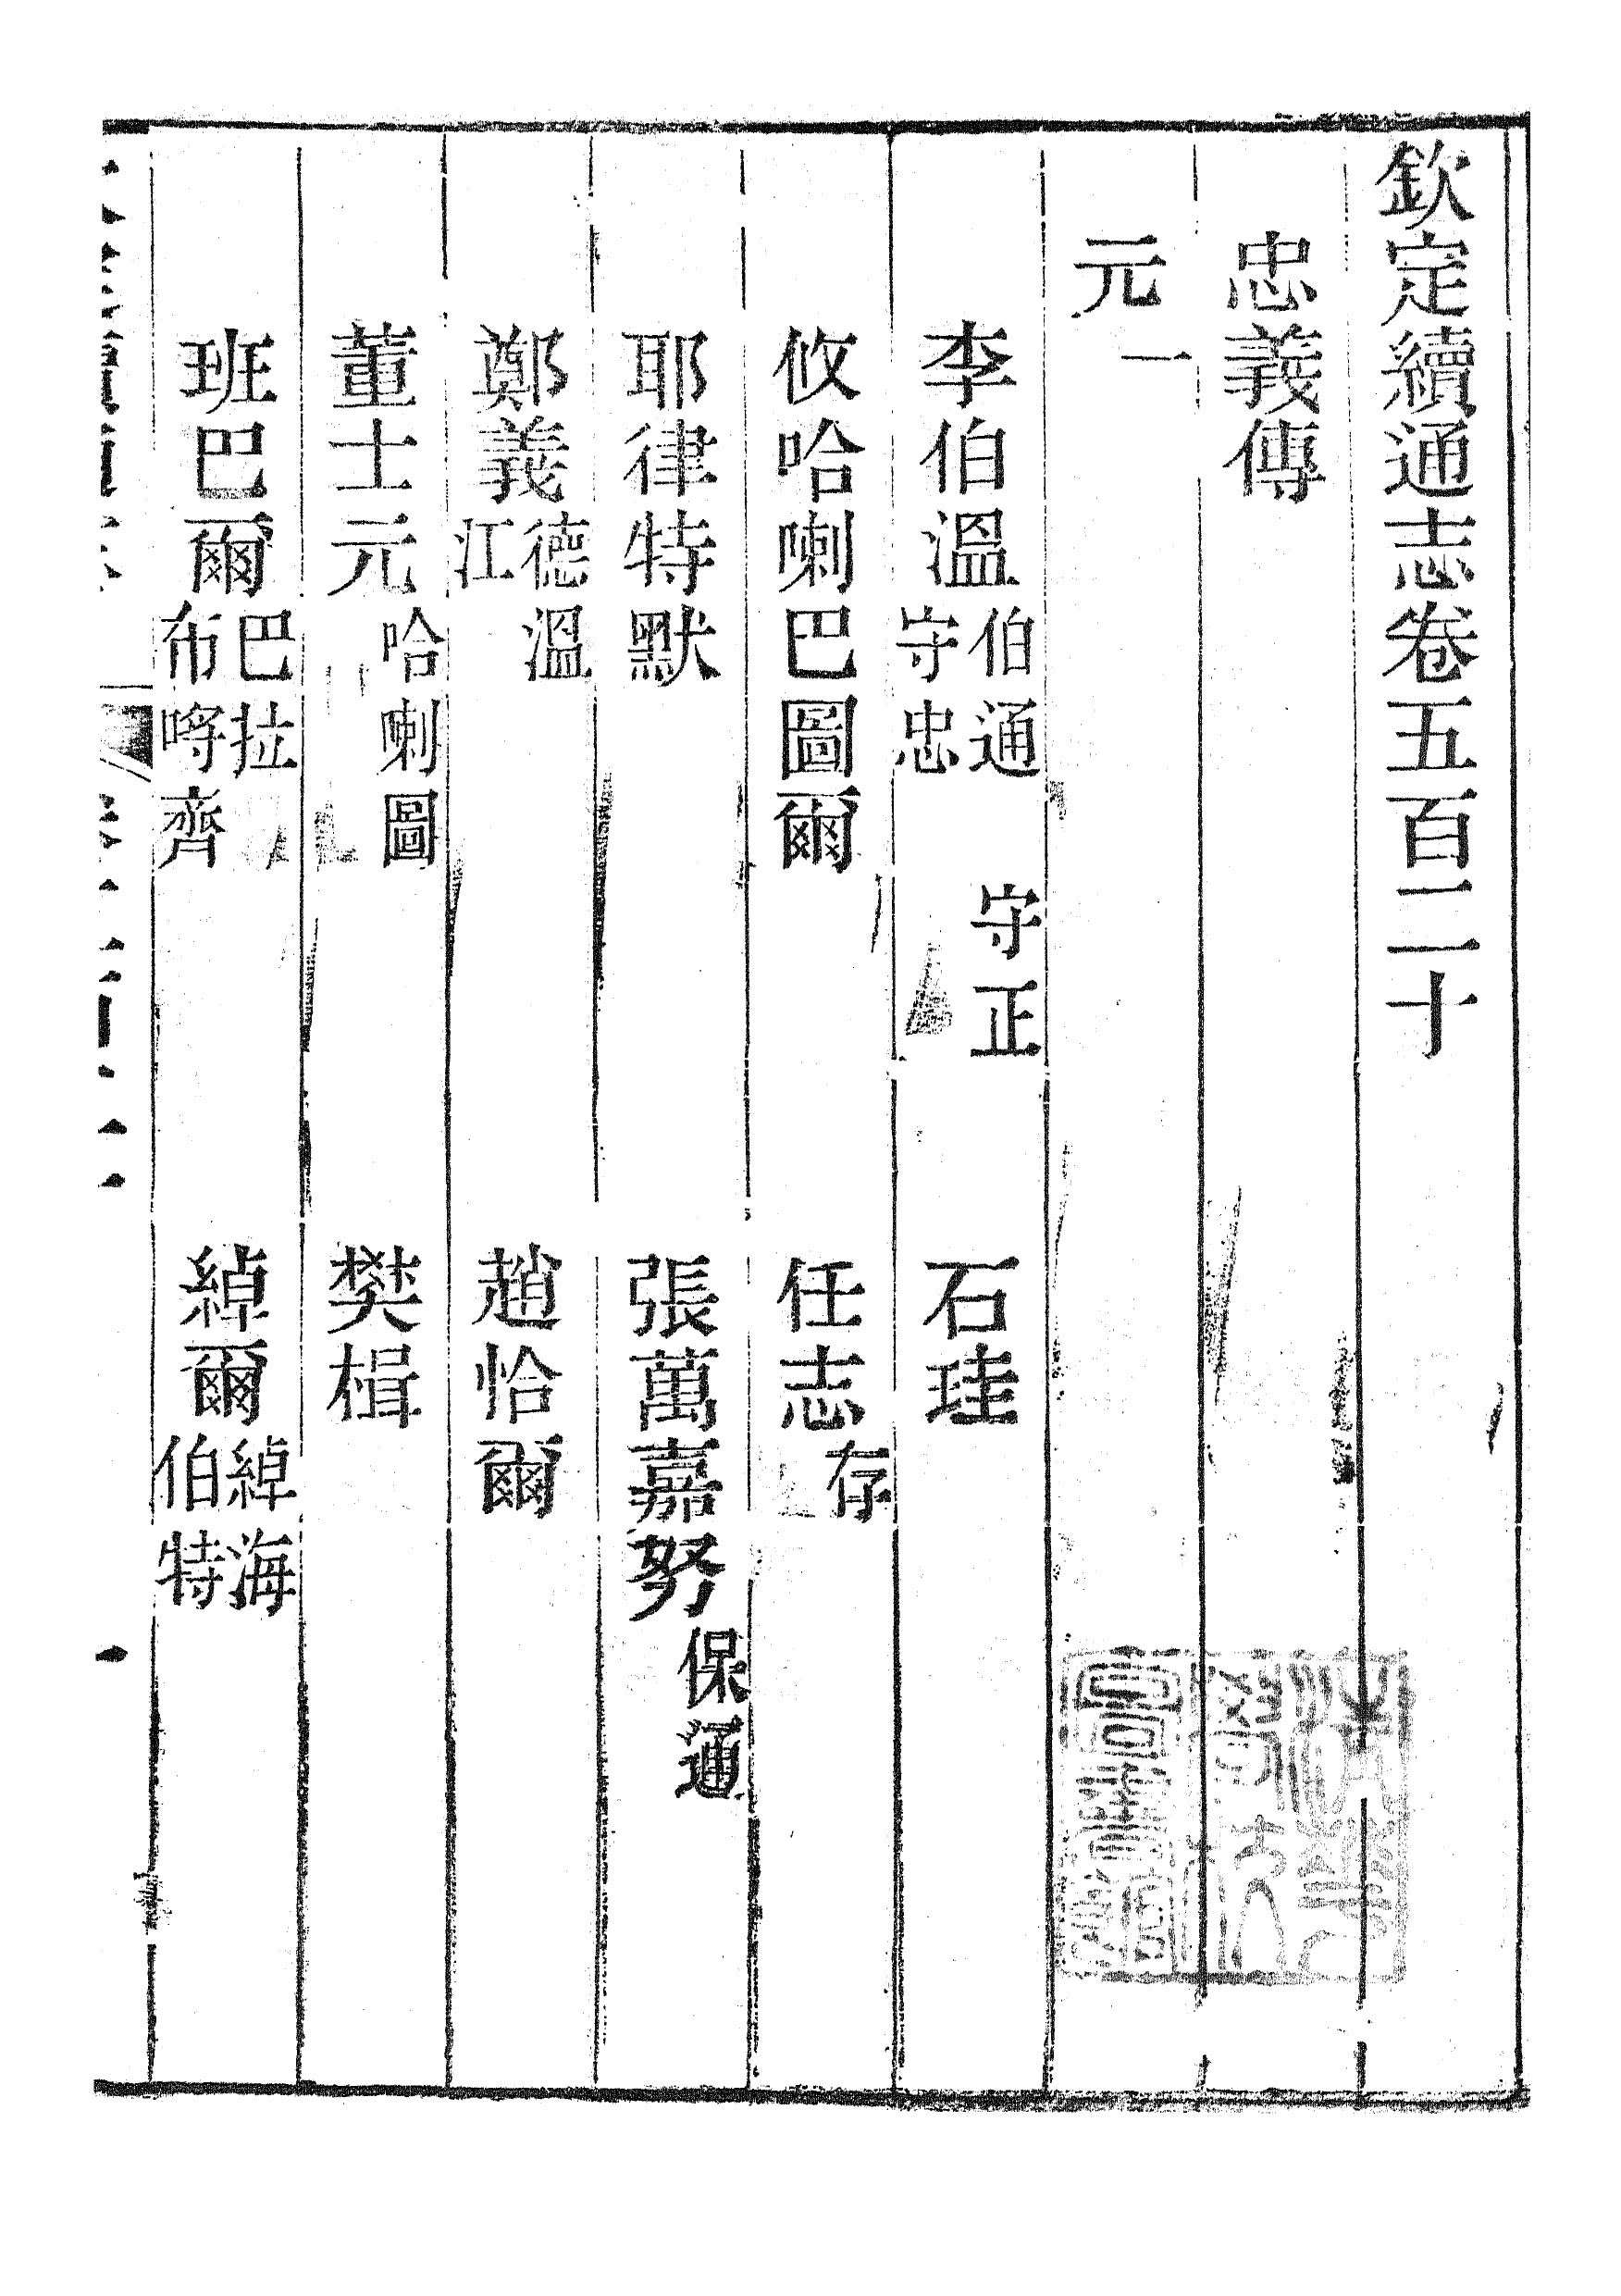 欽定續通志卷五百二十
忠義傳
元一
李伯溫伯通 守正守忠 石珪
攸哈喇巴圖爾 任志存
耶律特默 張萬嘉努保通
鄭義德溫江 趙恰爾
董士元哈喇圖 樊楫
班巴爾巴拉布哷齊 綽爾綽海伯特